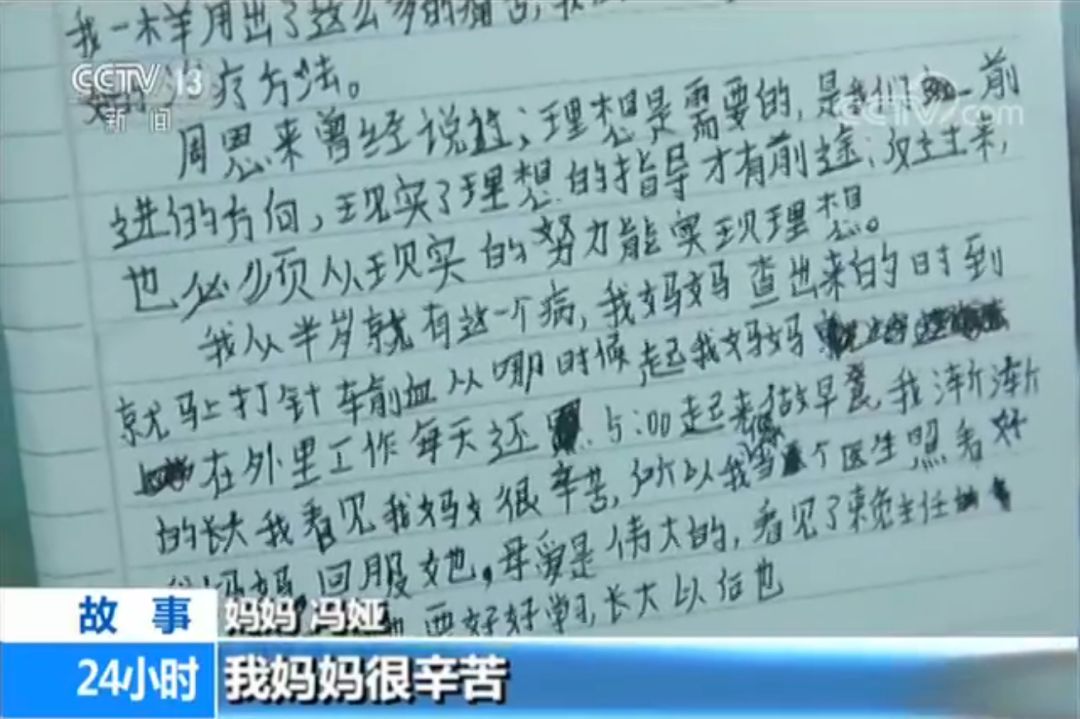 我一样用出了这么多的痛苦,我
治疗方法。
周恩来曾经说过:理想是需要的,是我们前
进的方向,现实了理想的指导才有前途;反过来,
也必须从现实的努力能实现理想。
我从半岁就有这一个病,我妈妈查出来的时到
就马上打针车前血从哪时候起我妈妈
在外里工作每天还 5:00起来做早餐我渐渐
的长大我看见我妈妈很辛苦,所以我当个医生照看好
妈妈,回服她,母爱是伟大的,看见了赖主任
要好好学习,长大以后也
CCTV 13
新闻
CCTV.com
故事
妈妈 冯娅
24小时
我妈妈很辛苦